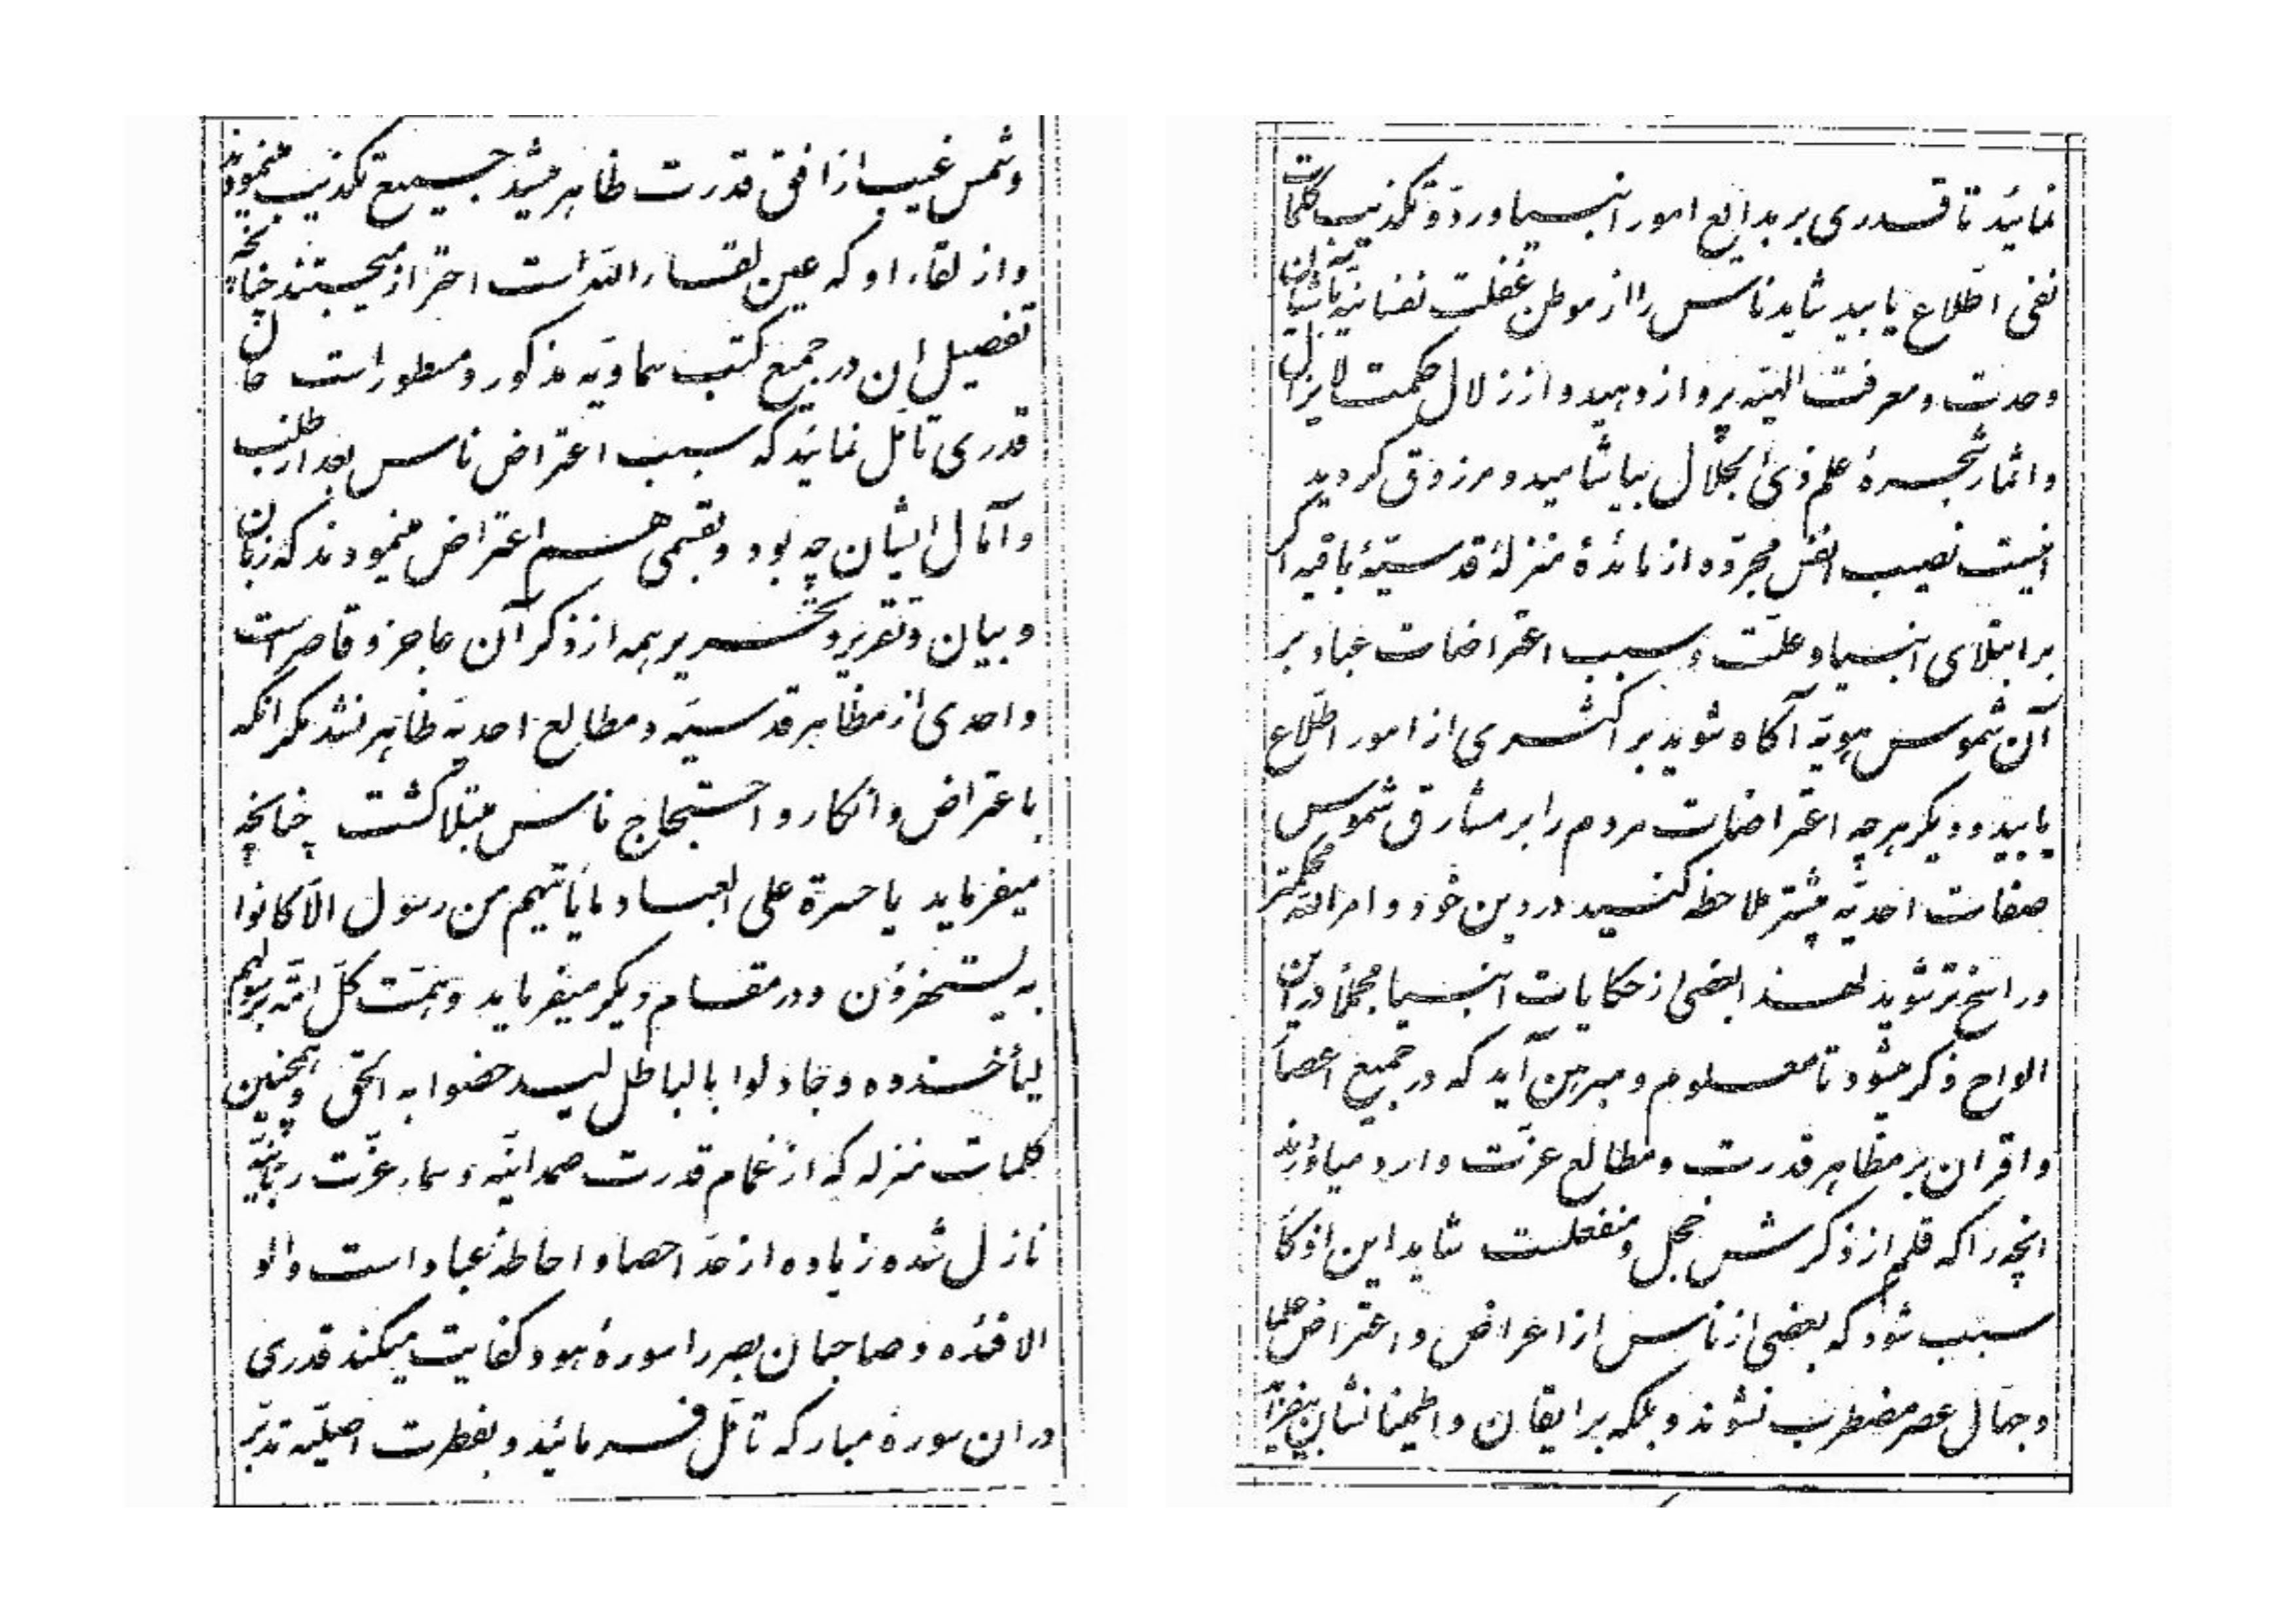 وشمس غیب از افق قدرت ظاهر میشد جمیع تکذیب مینمودند
و از لقاء او که عین لقاء الله است احتراز میجستند چنانچه
تفصیل ان در جمیع کتب سماویّه مذکور و مسطور است حال
قدری تأمّل نمائید که سبب اعتراض ناس بعد از طلب
و آمال ایشان چه بود و بقسمی هم اعتراض مینمودند که زبان
و بیان و تقریر و تحریر همه از ذکر آن عاجز و قاصر است
و احدی از مظاهر قدسیّه و مطالع احدیّه ظاهر نشد مگر انکه
باعتراض و انکار و احتجاج ناس مبتلا گشت چنانچه
میفرماید یا حسرة علی العباد ما یأتیهم من رسول الّا کانوا
به یستهزؤن و در مقام دیگر میفرماید و همّت کلّ امّة برسولهم
لیأخذوه و جادلوا بالباطل لیدحضوا به الحق و همچنین
کلمات منزله که از غمام قدرت صمدانیّه و سماء عزّت ربّانیّه
نازل شده زیاده از حدّ احصا و احاطهٔ عباد است و اولو
الافئده و صاحبان بصر را سورهٔ هود کفایت میکند قدری
در ان سورهٔ مبارکه تأمّل فرمائید و بفطرت اصلیّه تدبّر
نمائید تا قدری بر بدایع امور انبیا و ردّ و تکذیب کلمات
نفی اطّلاع یابید شاید ناس را از موطن غفلت نفسانیّه بآشیان
وحدت و معرفت الهیّه پرواز دهید و از زلال حکمت لایزال
و اثمار شجرهٔ علم ذی الجلال بیاشامید و مرزوق گردید
اینست نصیب انفس مجرّده از مائدهٔ منزلهٔ قدسیّهٔ باقیه اگر
بر ابتلای انبیا و علّت و سبب اعتراضات عباد بر
آن شموس هویّه آگاه شوید بر اکثری از امور اطّلاع
یابید و دیگر هر چه اعتراضات مردم را بر مشارق شموس
صفات احدیّه بیشتر ملاحظه کنید در دین خود و امر الله محکمتر
و راسخ تر شوید لهذا بعضی از حکایات انبیا مجملاً در این
الواح ذکر میشود تا معلوم و مبرهن آید که در جمیع اعصار
و اقران بر مظاهر قدرت و مطالع عزّت وارد میاوردند
انچه را که قلم از ذکرش خجل و منفعلست شاید این اذکار
سبب شود که بعضی از ناس از اعراض و اعتراض علما
و جهّال عصر مضطرب نشوند و بلکه بر ایقان و اطمینانشان بیفزاید